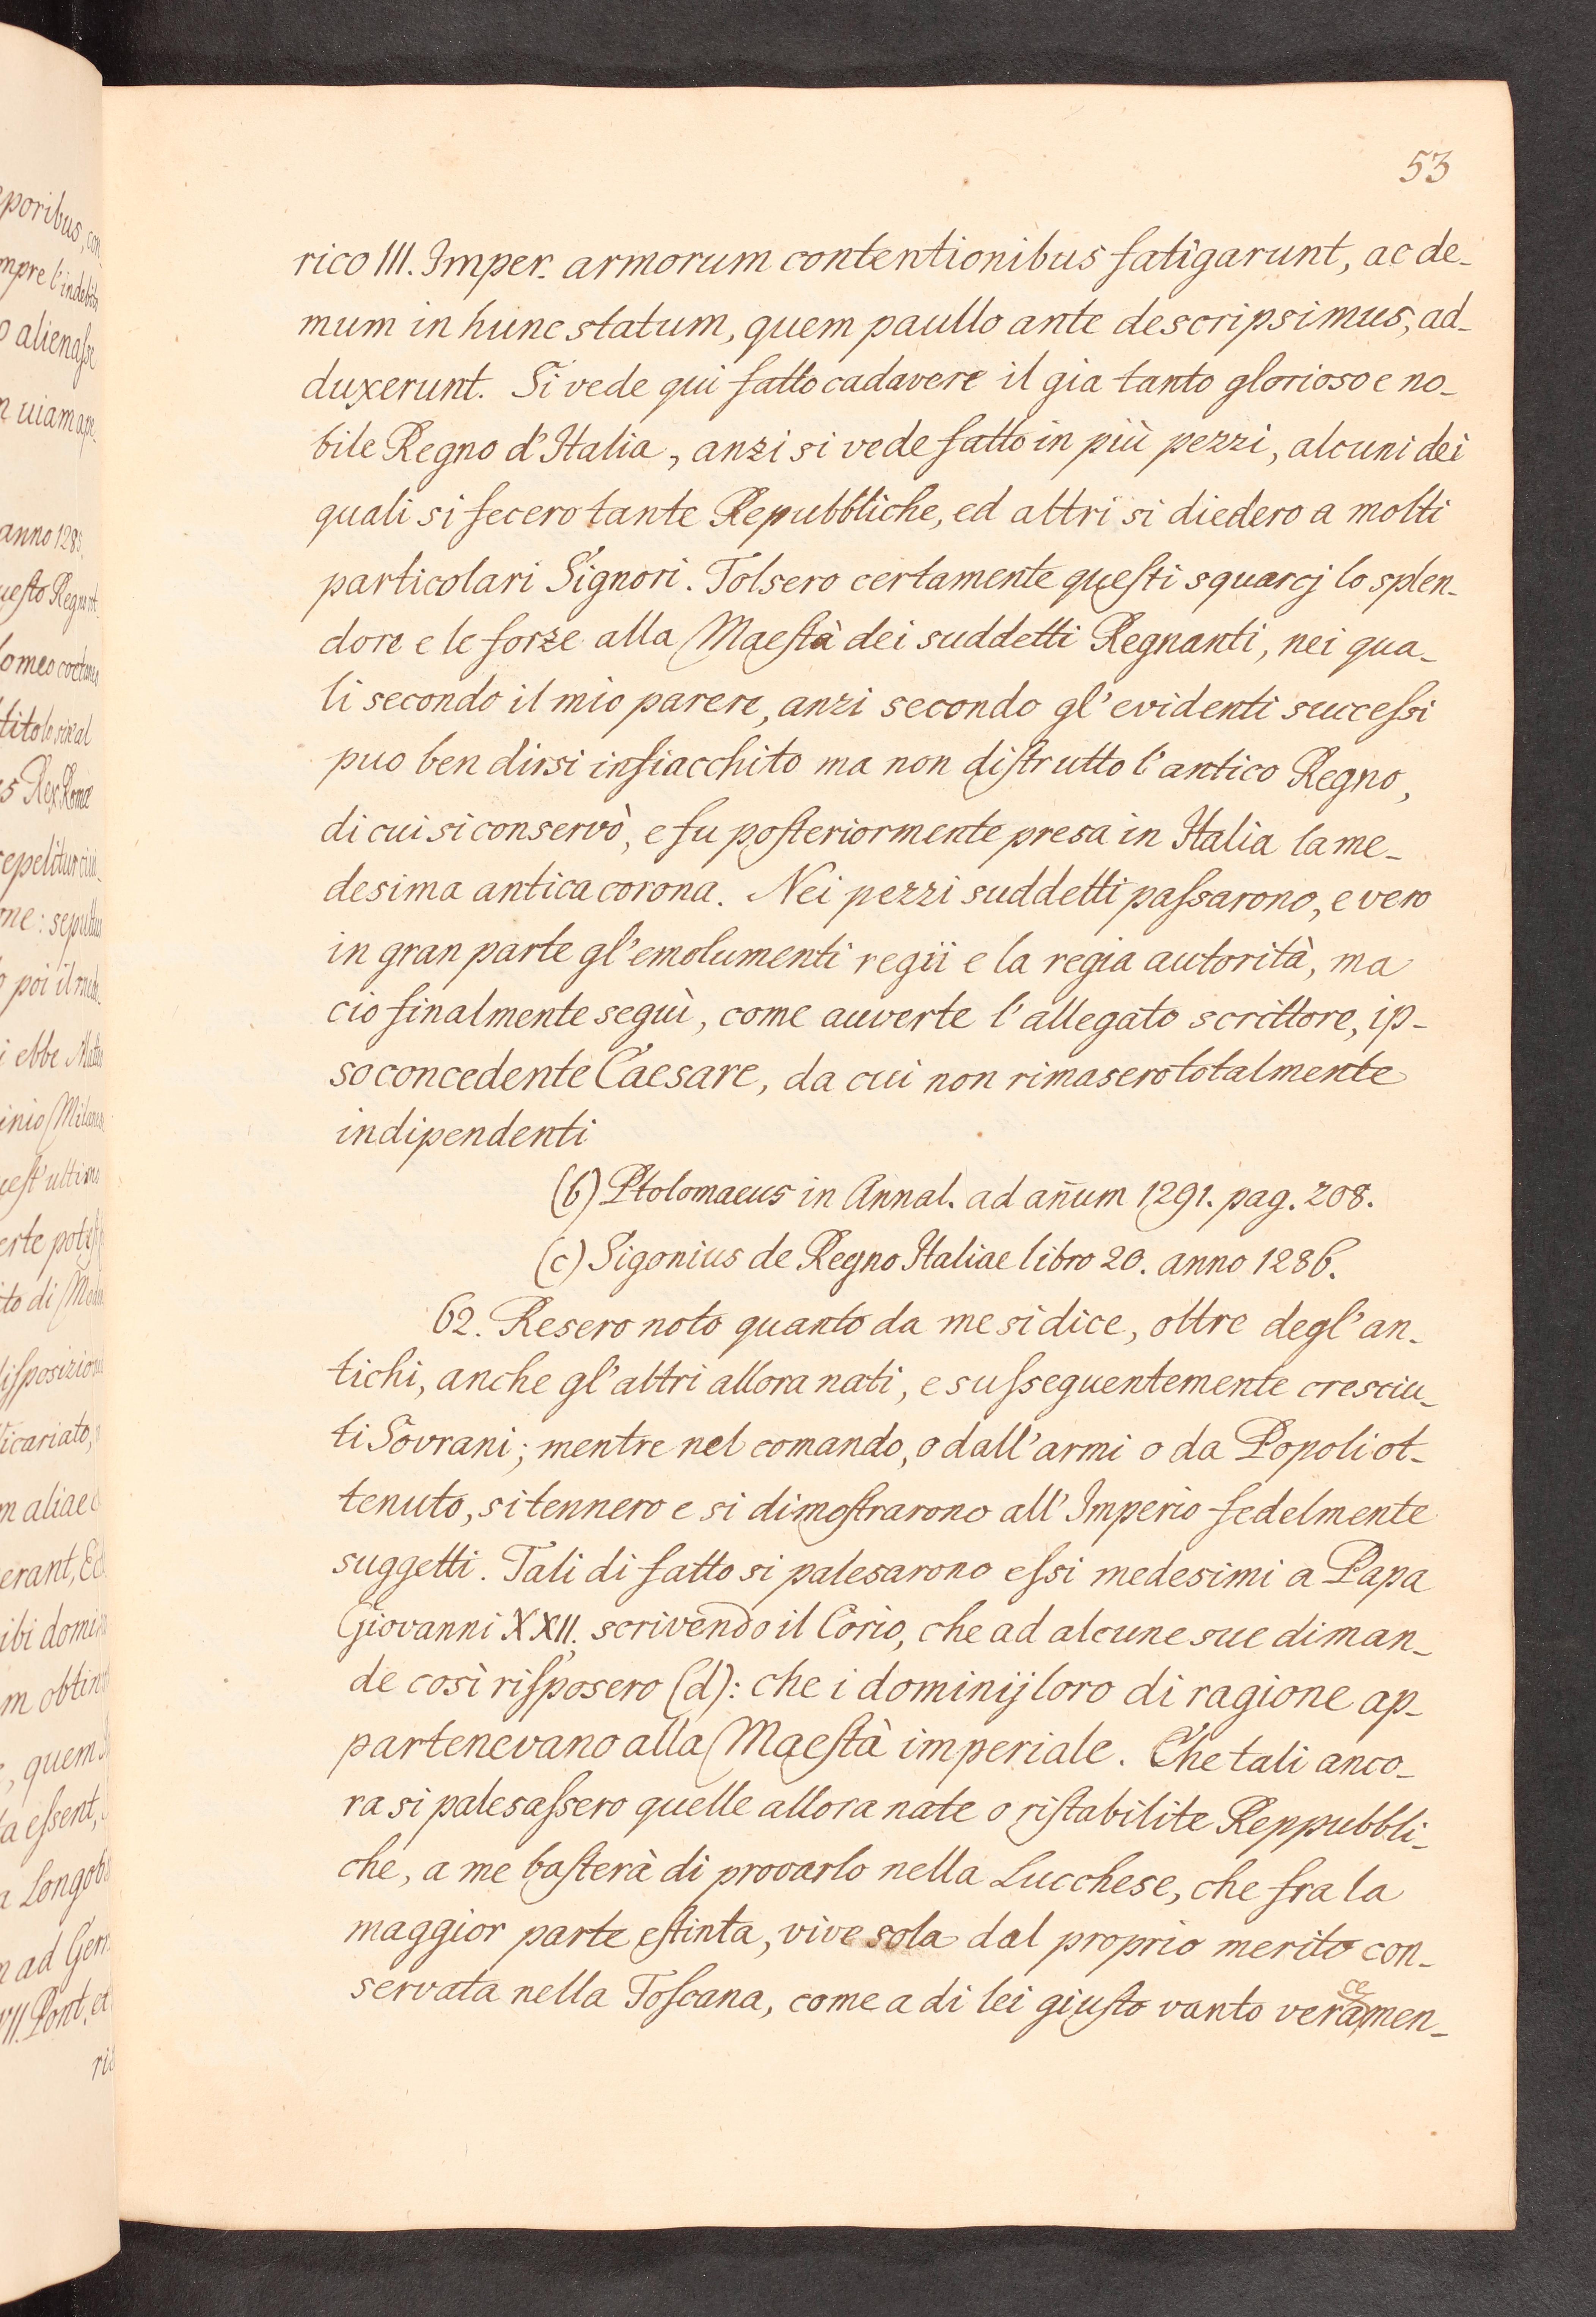 53
rico III. Imper. armorum contentionibus fatigarunt, ac de-
mum in hunc statum, quem paullo ante descripsimus, ad-
duxerunt. Si vede qui fatto cadavere il gia tanto glorioso e no-
bile Regno d'Italia, anzi si vede fatto in più pezzi, alcuni dei
quali si fecero tante Repubbliche, ed altri si diedero a molti
particolari Signori. Tolsero certamente queſti squarcj lo splen-
dore e le forze alla Maeſtà dei suddetti Regnanti, nei qua-
li secondo il mio parere, anzi secondo gl'evidenti succeſsi
puo ben dirsi infiacchito ma non diſtrutto l'antico Regno,
di cui si conservò, e fu poſteriormente presa in Italia la me-
desima antica corona. Nei pezzi suddetti paſsarono, e vero
in gran parte gl'emolumenti regii e la regia autorità, ma
cio finalmente seguì, come auverte l'allegato scrittore, ip-
so concedente Caesare, da cui non rimasero totalmente
indipendenti
(b) Ptolomaeus in Annal. ad añum 1291. pag. 208.
(c) Sigonius de Regno Italiae libro 20. anno 1286.
62. Resero noto quanto da me si dice, oltre degl'an-
tichi, anche gl'altri allora nati, e suſseguentemente cresciu-
ti Sovrani; mentre nel comando, o dall'armi o da Popoli ot-
tenuto, si tennero e si dimoſtrarono all'Imperio fedelmente
suggetti. Tali di fatto si palesarono eſsi medesimi a Papa
Giovanni XXII. scrivendo il Corio, che ad alcune sue diman-
de così riſposero (d): che i dominij loro di ragione ap-
partenevano alla Maeſtà imperiale. Che tali anco-
ra si palesaſsero quelle allora nate o riſtabilite Reppubbli-
che, a me baſterà di provarlo nella Lucchese, che fra la
maggior parte eſtinta, vive sola dal proprio merito con-
servata nella Toſcana, come a di lei giuſto vanto veracemen-